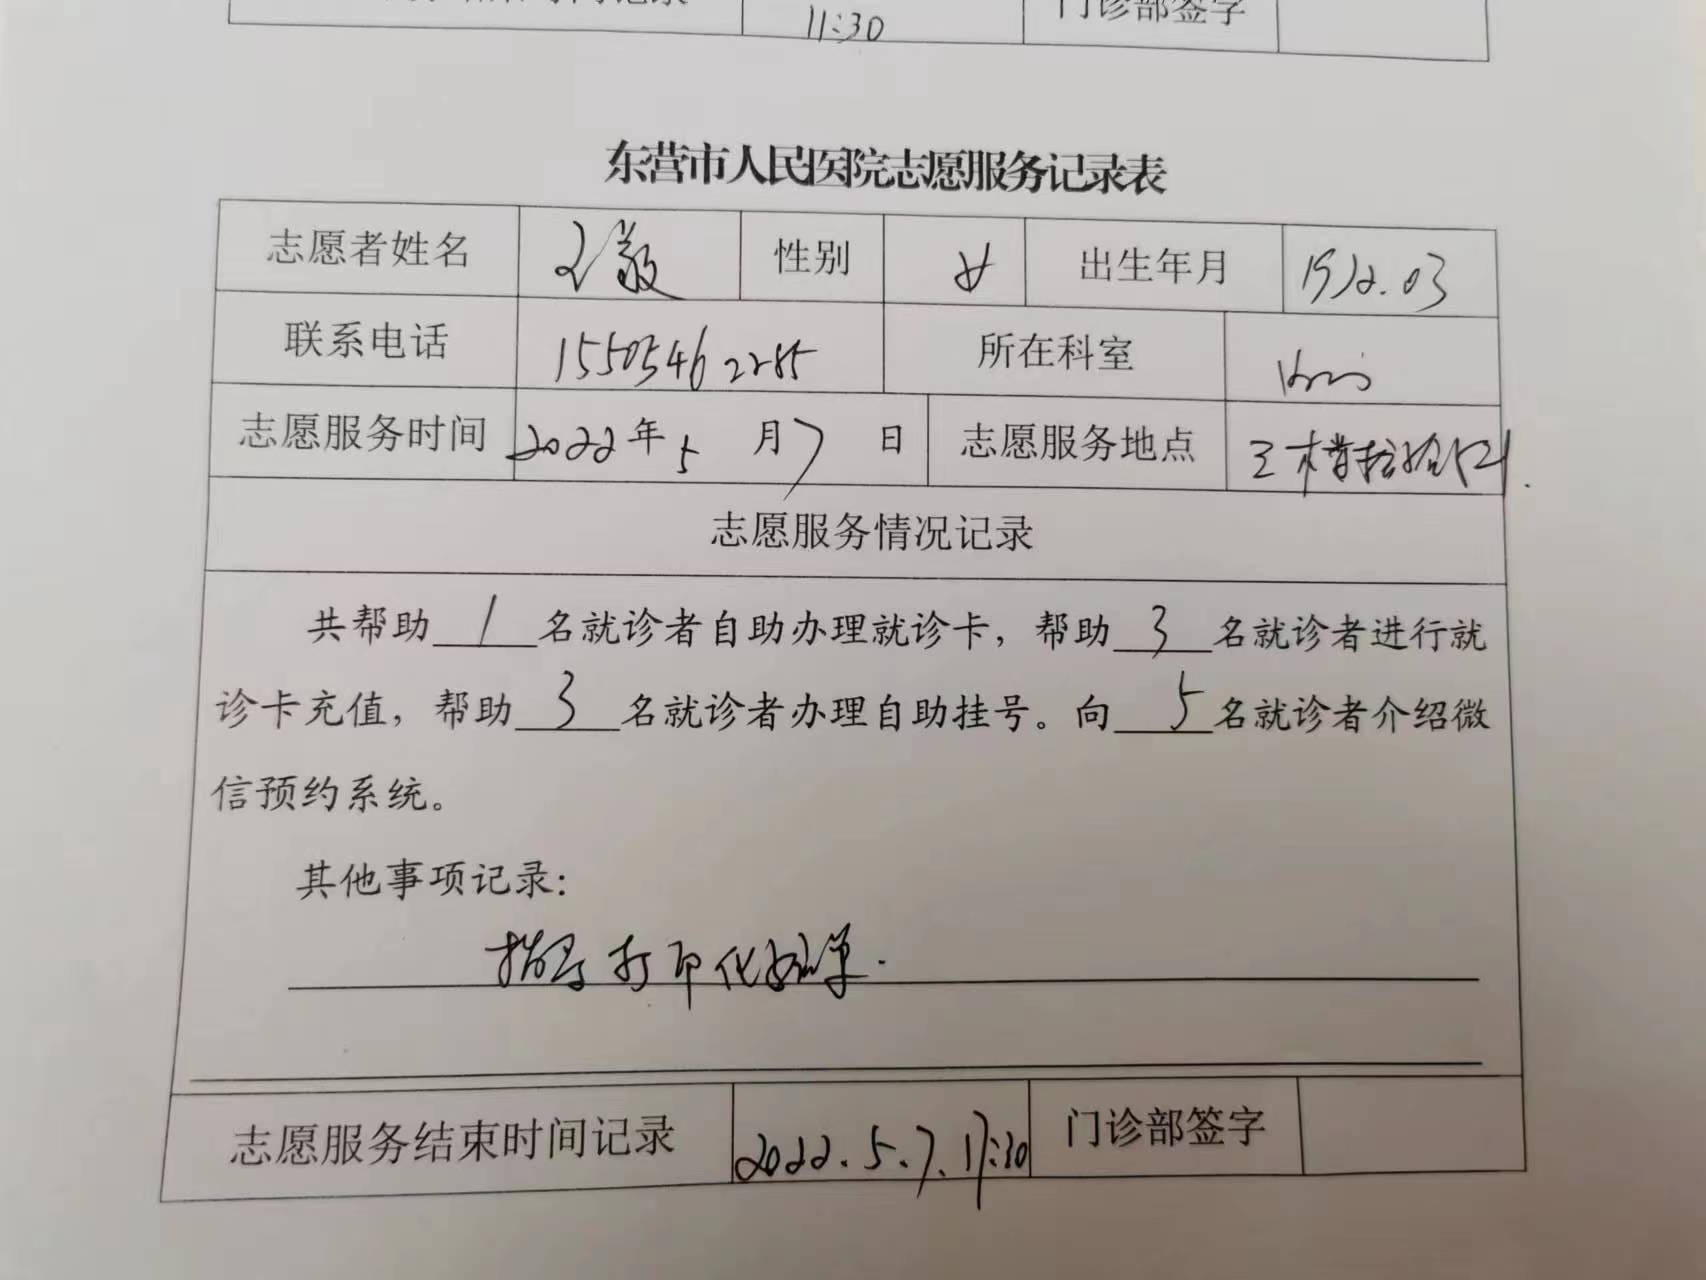 11:30
门诊部签字
东营市人民医院志愿服务记录表
志愿者姓名 王敏 性别 女 出生年月
联系电话 15505462285 所在科室
志愿服务时间 2022年5月7日 志愿服务地点
志愿服务情况记录
共帮助 1 名就诊者自助办理就诊卡，帮助 3 名就诊者进行就
诊卡充值，帮助 3 名就诊者办理自助挂号。向 5 名就诊者介绍微
信预约系统。
其他事项记录：
指导打印化验单.
志愿服务结束时间记录 2022.5.7.17:30 门诊部签字